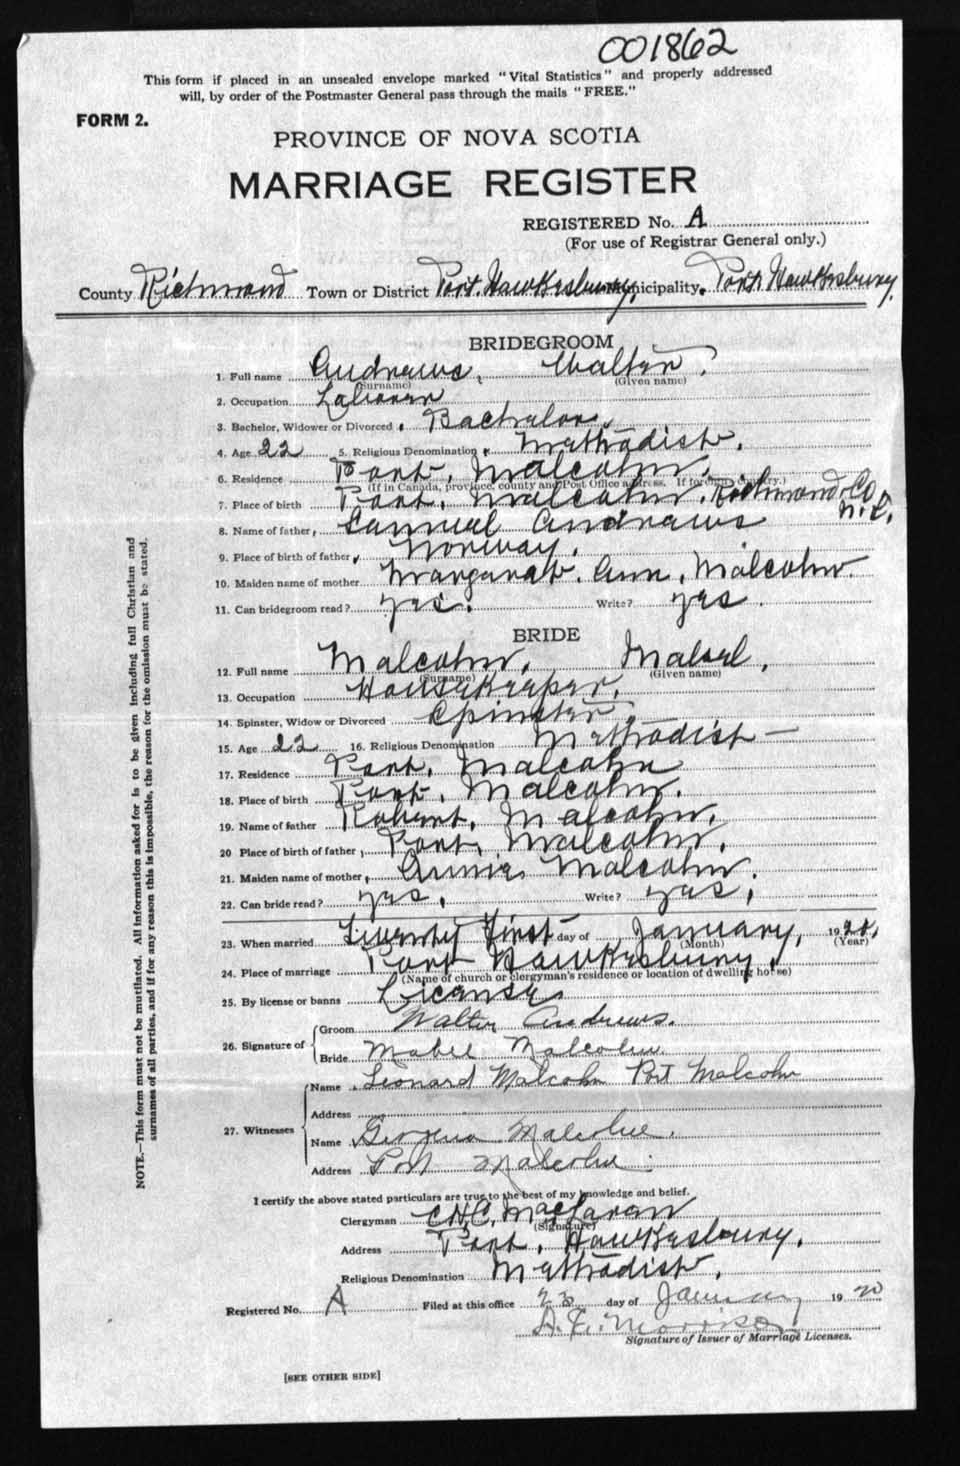 001862
This form if placed in an unsealed envelope marked "Vital Statistics" and properly addressed
will, by order of the Postmaster General pass through the mails "FREE."
FORM 2.
PROVINCE OF NOVA SCOTIA
MARRIAGE REGISTER
REGISTERED No. A
(For use of Registrar General only.)
County Richmond Town or District Port. Hawkesbury. Municipality. Port Hawkesbury.
BRIDEGROOM
1. Full name Andrews, Walter.
(Surname) (Given name)
2. Occupation Laborer
3. Bachelor, Widower or Divorced Bachelor
4. Age 22 5. Religious Denomination Methodist.
6. Residence Port, Malcolm.
(If in Canada, province, county and Post Office address. If foreign country.)
7. Place of birth Port, Malcolm. Richmond Co
8. Name of father, Samuel Andrews
9. Place of birth of father, Norway.
10. Maiden name of mother Margaret. Ann. Malcolm.
11. Can bridegroom read? yes. Write? yes.
BRIDE
12. Full name Malcolm, Mabel.
(Surname) (Given name)
13. Occupation Housekeeper.
14. Spinster, Widow or Divorced Spinster.
15. Age 22 16. Religious Denomination Methodist—
17. Residence Port, Malcolm
18. Place of birth Port, Malcolm.
19. Name of father Robert, Malcolm.
20 Place of birth of father, Port, Malcolm.
21. Maiden name of mother, Annie Malcolm.
22. Can bride read? yes. Write? yes.
23. When married Twenty First day of January, 1920.
(Month) (Year)
24. Place of marriage Port Hawkesbury.
(Name of church or clergyman's residence or location of dwelling house)
25. By license or banns License
26. Signature of
Groom Walter Andrews.
Bride Mabel Malcolm.
27. Witnesses
Name Leonard Malcolm Port Malcolm
Address
Name Georgena Malcolm.
Address Port Malcolm.
I certify the above stated particulars are true to the best of my knowledge and belief.
Clergyman C.H.C. MacLaren
(Signature)
Address Port, Hawkesbury.
Religious Denomination Methodist.
Registered No. A Filed at this office 23 day of January 1920
Morrison
Signature of Issuer of Marriage Licenses.
[SEE OTHER SIDE]
NOTE.—This form must not be mutilated. All information asked for is to be given including full Christian and
surnames of all parties, and if for any reason this is impossible, the reason for the omission must be stated.